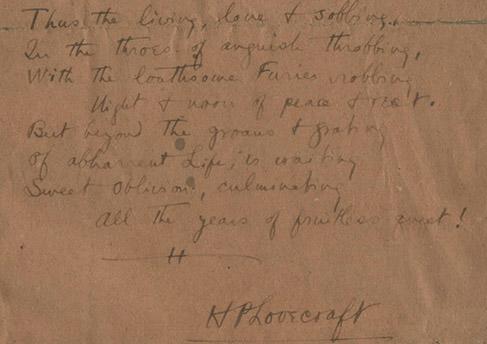 Thus the living, lone & sobbing,
In the throes of anguish throbbing,
With the loathsome Furies robbing
Night & noon of peace & rest.
But beyond the groans & grating
Of abhorrent Life, is waiting
Sweet Oblivion, culminating
All the years of fruitless quest!
H
HPLovecraft